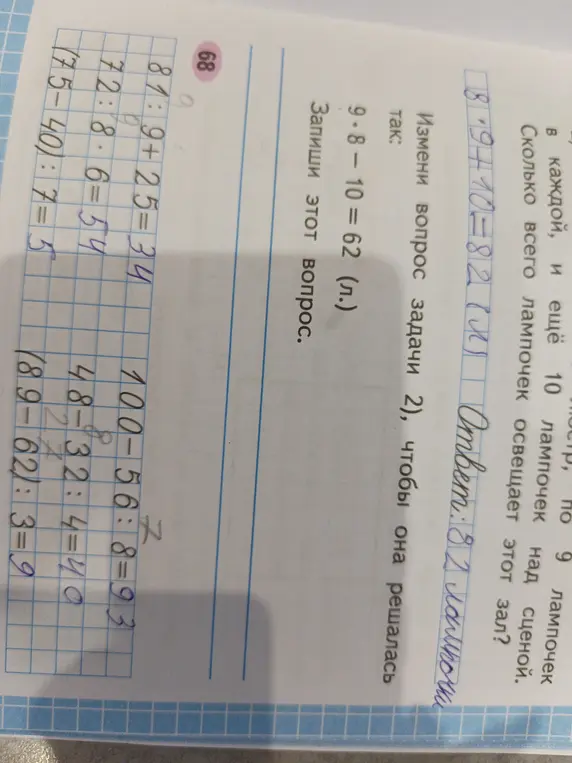 по 9 лампочек
в каждой, и ещё 10 лампочек над сценой.
Сколько всего лампочек освещает этот зал?
8·9+10=82 (л) Ответ: 82 лампочки
Измени вопрос задачи 2), чтобы она решалась
так:
9 · 8 − 10 = 62 (л.)
Запиши этот вопрос.
68
81:9+25=34
72:8·6=54
(75−40):7=5
7
100−56:8=93
8
48−32:4=40
27
(89−62):3=9